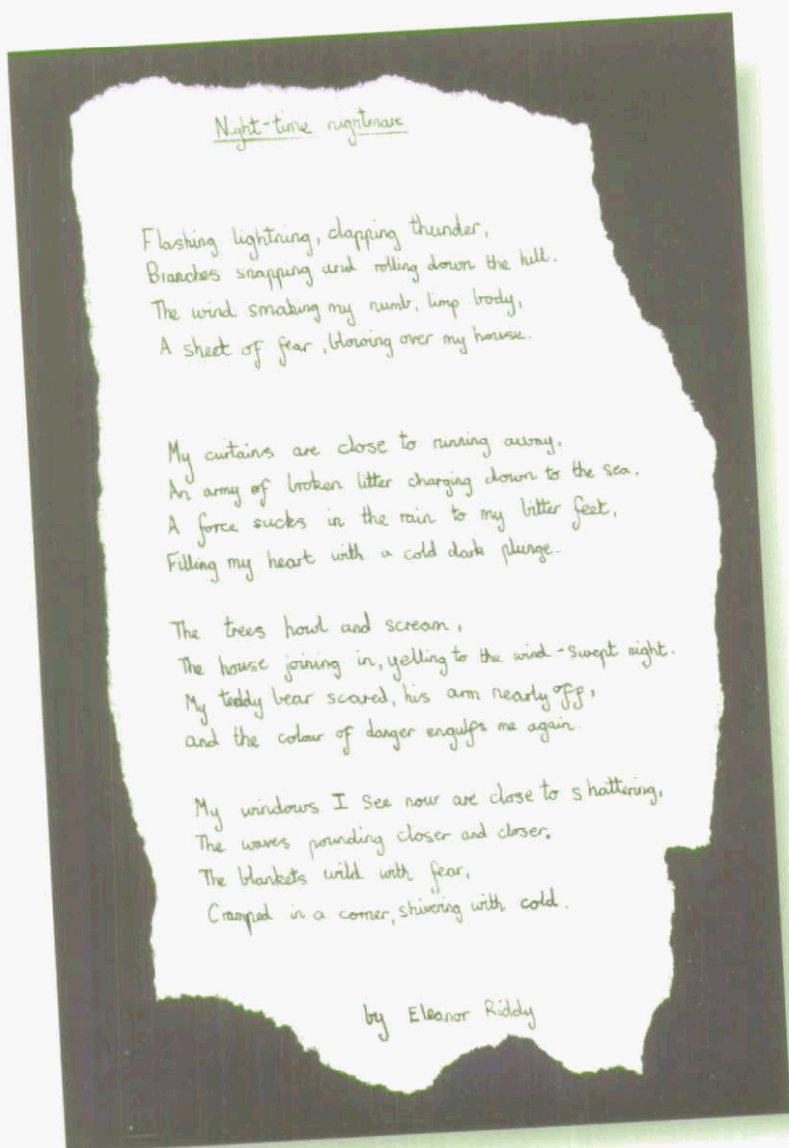 Night-time nightmare
Flashing lightning, clapping thunder,
Branches snapping and rolling down the hill.
The wind smaking my numb, limp body,
A sheet of fear, blowing over my house.
My curtains are close to running away,
An army of broken litter charging down to the sea.
A force sucks in the rain to my bitter feet,
Filling my heart with a cold dark plunge.
The trees howl and scream,
The house joining in, yelling to the wind-swept night.
My teddy bear scared, his arm nearly off,
and the colour of danger engulfs me again.
My windows I see now are close to shattering,
The waves pounding closer and closer.
The blankets wild with fear,
Cramped in a corner, shivering with cold.
by Eleanor Riddy